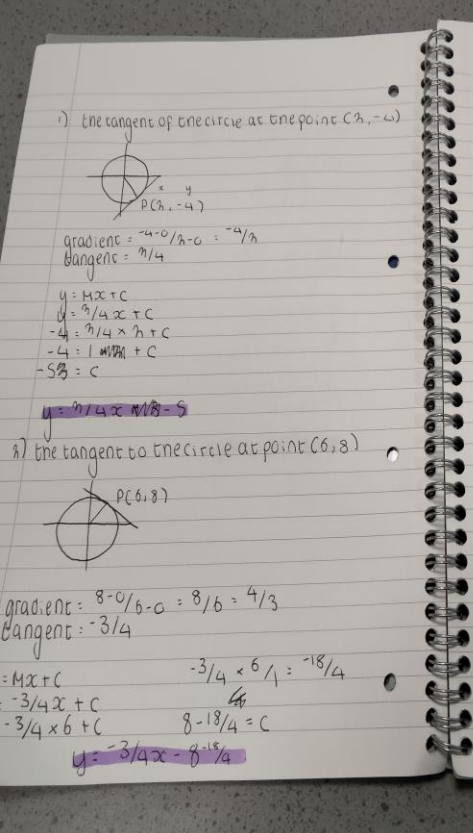 1) the tangent of the circle at the point (3, -4)
x y
P(3, -4)
gradient = -4-0/3-0 = -4/3
tangent = 3/4
y = mx + c
y = 3/4 x + c
-4 = 3/4 × 3 + c
-4 = 1 + c
= c
y = 3/4 x - 5
2) the tangent to the circle at point (6, 8)
P(6, 8)
gradient = 8-0/6-0 = 8/6 = 4/3
tangent = -3/4
= mx + c -3/4 × 6/1 = -18/4
-3/4x + c
-3/4 × 6 + c 8 - 18/4 = c
y = -3/4x - 8 -18/4